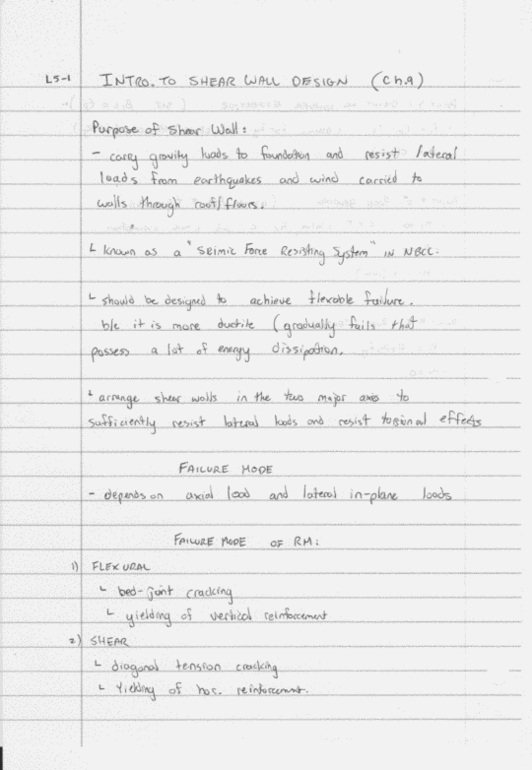 L5-1 INTRO. TO SHEAR WALL DESIGN (Ch.9)
Purpose of Shear Wall:
- carry gravity loads to foundation and resist lateral
loads from earthquakes and wind carried to
walls through roof/floors.
└ known as a "Seimic Force Resisting System" IN NBCC.
└ should be designed to achieve flexable failure.
b/c it is more ductile (gradually fails that
possess a lot of energy dissipation.
└ arrange shear walls in the two major axis to
sufficiently resist lateral loads and resist torsional effects
FAILURE MODE
- depends on axial load and lateral in-plane loads
FAILURE MODE OF RM:
1) FLEXURAL
└ bed-joint cracking
└ yielding of vertical reinforcement
2) SHEAR
└ diagonal tension cracking
└ Yielding of hor. reinforcement.